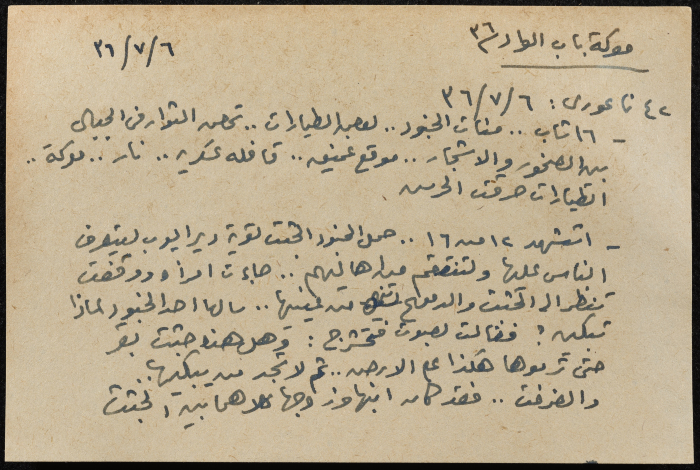 معركة باب الواد ٣٦
٣٦/٧/٦
٤٢ ناعوري: ٣٦/٧/٦
- ١٦ شاب .. مئات الجنود .. الطيارات .. تحصن الثوار في الجبال
بين الصخور والاشجار .. موقع عميق .. قافلة عسكرية .. نار .. معركة ..
الطيارات حرقت الحرس
- استشهد ١٢ من ١٦ .. حمل الجنود الجثث لقرية دير ايوب ليتعرف
الناس عليها ولتنتقم من اهاليهم .. جاءت امرأة ووقفت
تنظر الى الجثث والدموع من عينيها .. سالها احد الجنود لماذا
تبكين؟ فقالت بصوت متحشرج: وهل هذه جثث بقر
حتى ترموها هكذا على الارض .. ثم لا تجد من يبكيها ..
وانصرفت .. فقد كان ابنها وزوجها كلاهما بين الجثث